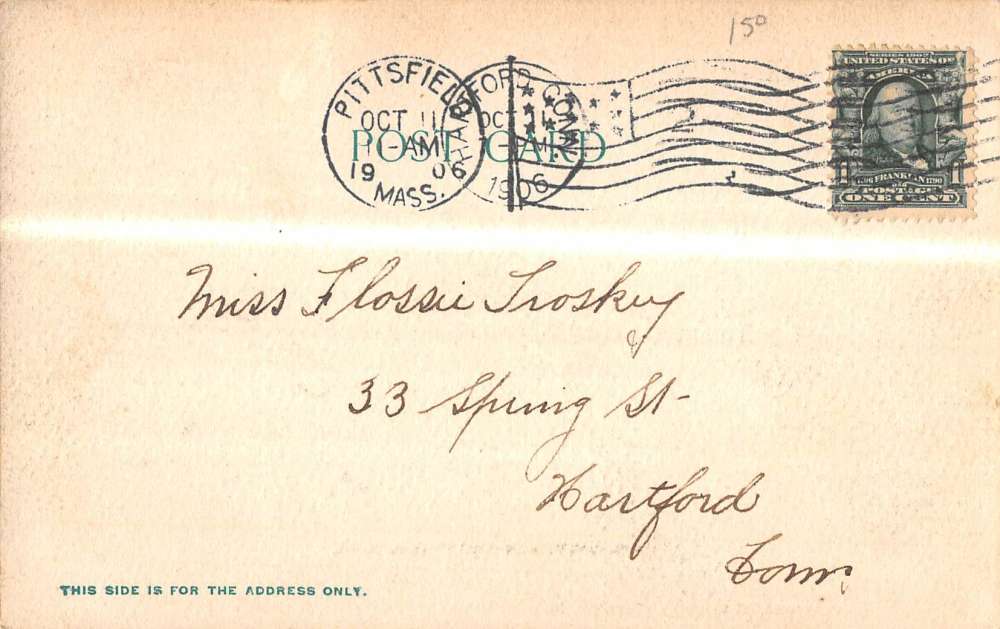 15⁰
PITTSFIELD
OCT 11
-AM
19 06
MASS.
HARTFORD CONN.
OCT 11
1906
POST CARD
SERIES 1902
UNITED STATES OF
AMERICA
FRANKLIN 1790
POSTAGE
1 1
ONE CENT
Miss Flossie Troskey
33 Spring St-
Hartford
Conn,
THIS SIDE IS FOR THE ADDRESS ONLY.